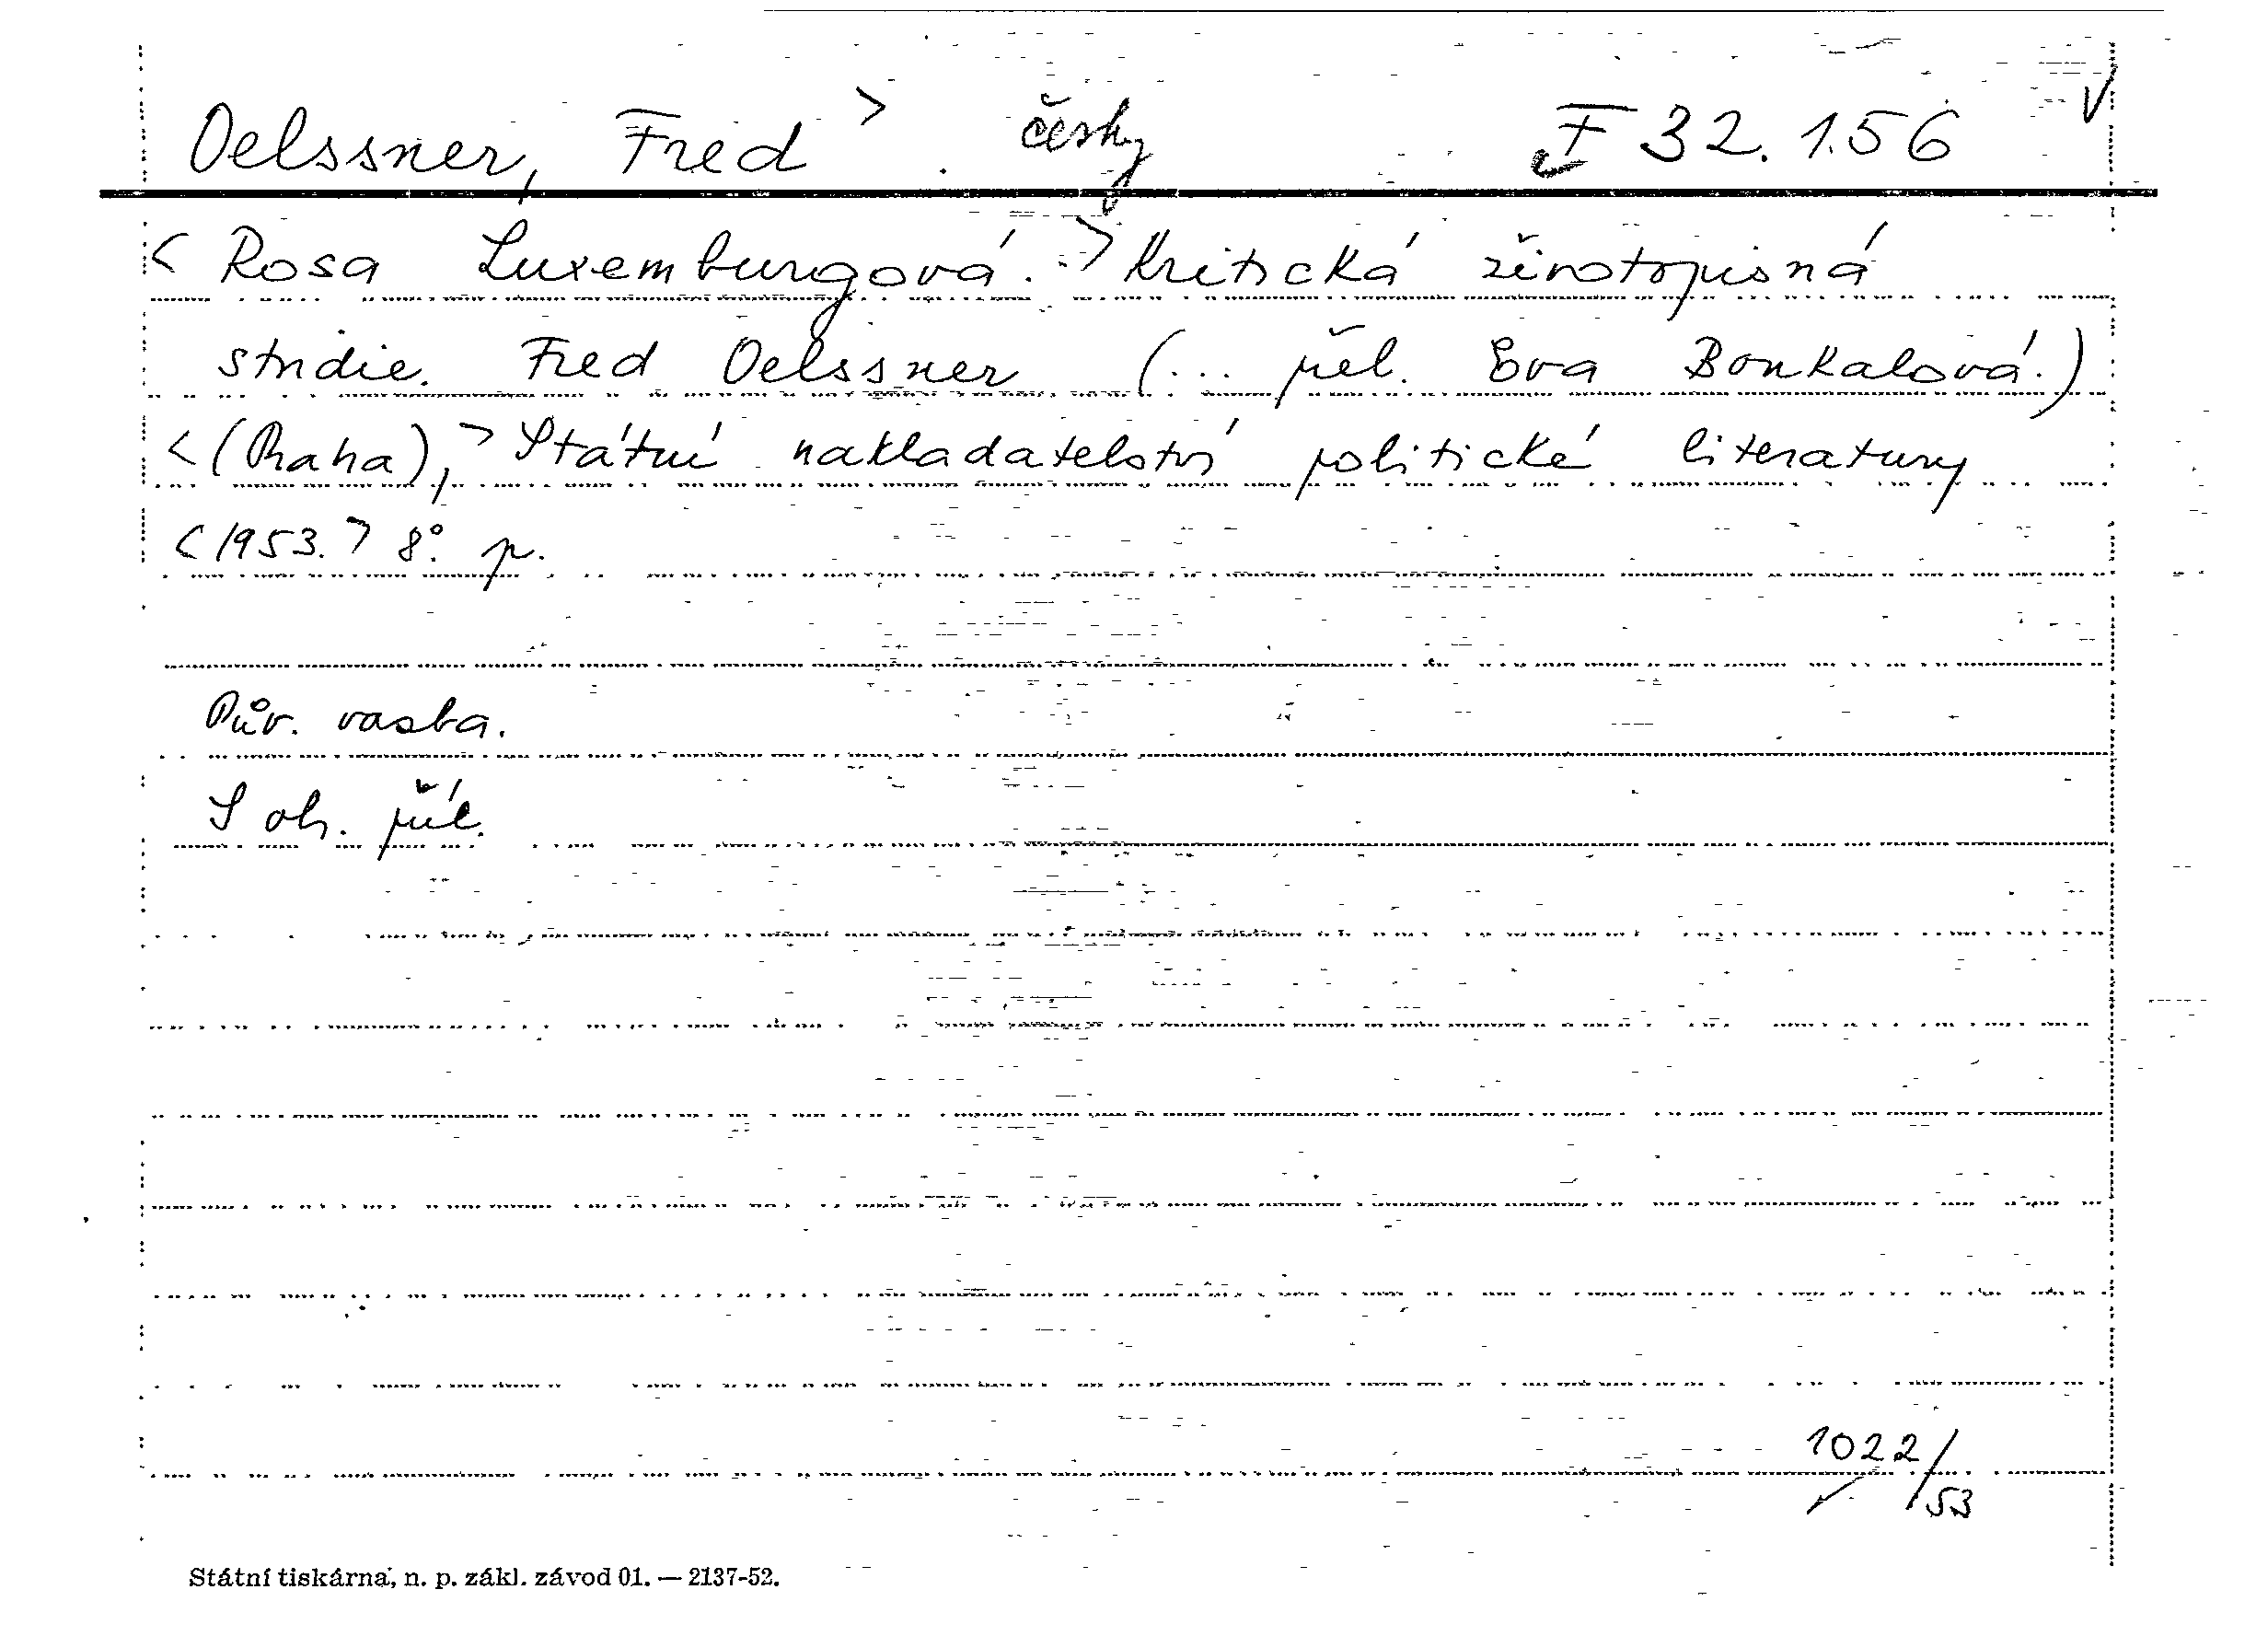 Oelssner, Fred > česky F 32.156
< Rosa Luxemburgová. > Kritická životopisná
studie. Fred Oelssner (... přel. Eva Bonkalová.)
< (Praha), > Státní nakladatelství politické literatury
< 1953. > 8°. p.
Pův. vazba.
S ob. příl.
1022/53
Státní tiskárna, n. p. zákl. závod 01. — 2137-52.